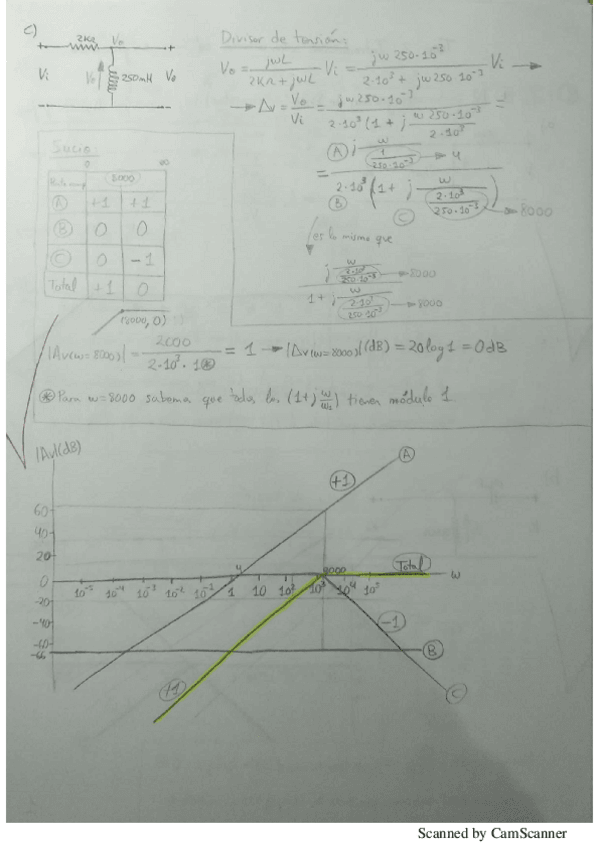 c)
2KΩ
Vo
Vi
250mH
Vo
Divisor de tensión:
Vo = jwL / 2KΩ + jwL Vi = jw 250·10⁻³ / 2·10³ + jw 250·10⁻³ Vi →
→ Δv = Vo / Vi = jw 250·10⁻³ / 2·10³ (1 + j w 250·10⁻³ / 2·10³) =
= Ⓐ j w / (1 / 250·10⁻³) → 4 / Ⓑ 2·10³ (1 + j w / (2·10³ / 250·10⁻³)) Ⓒ → 8000
es lo mismo que
j w / (2·10³ / 250·10⁻³) → 8000 / 1 + j w / (2·10³ / 250·10⁻³) → 8000
Sucio:
0 8000 ∞
Ⓐ +1 +1
Ⓑ 0 0
Ⓒ 0 -1
Total +1 0
(8000, 0)
|Av(w=8000)| = 2000 / 2·10³ · 1⊛ = 1 → |Av(w=8000)|(dB) = 20 log 1 = 0 dB
⊛ Para w=8000 sabemos que todos los (1+j w/w₁) tienen módulo 1
|Av|(dB)
A
+1
60
40
20
0
-20
-40
-60
-66
4
8000
Total
w
10⁻⁵ 10⁻⁴ 10⁻³ 10⁻² 10⁻¹ 1 10 10² 10³ 10⁴ 10⁵
-1
B
+1
C
Scanned by CamScanner